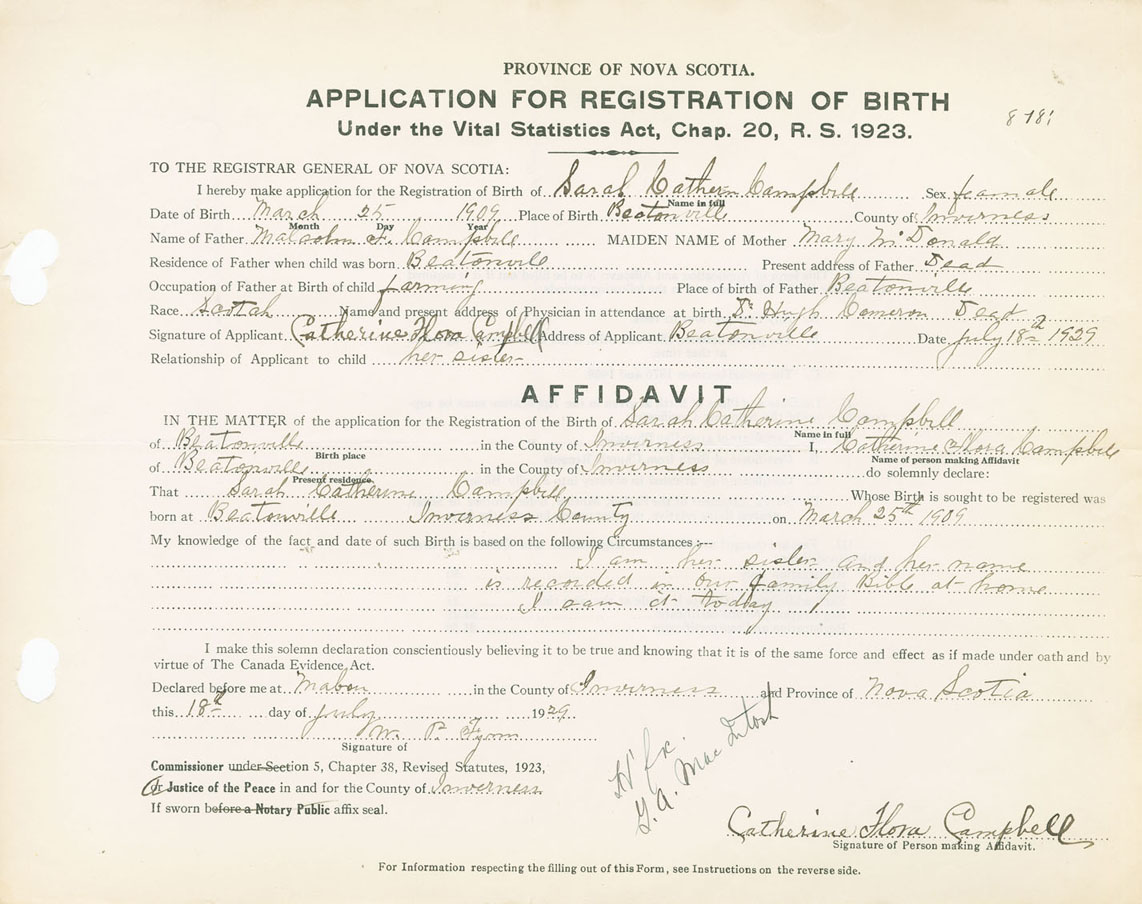 PROVINCE OF NOVA SCOTIA.
APPLICATION FOR REGISTRATION OF BIRTH
Under the Vital Statistics Act, Chap. 20, R. S. 1923.
TO THE REGISTRAR GENERAL OF NOVA SCOTIA:
I hereby make application for the Registration of Birth of Sarah Cathern Campbell Sex female
Name in full
Date of Birth March 25 1909 Place of Birth Beatonville County of Inverness
Month Day Year
Name of Father Malcolm F. Campbell MAIDEN NAME of Mother Mary McDonald
Residence of Father when child was born Beatonvile Present address of Father Dead
Occupation of Father at Birth of child farming Place of birth of Father Beatonville
Race Scotch Name and present address of Physician in attendance at birth Dr Hugh Cameron Dead
Signature of Applicant Catherine Flora Campbell Address of Applicant Beatonville Date July 18th 1929
Relationship of Applicant to child her sister
AFFIDAVIT
IN THE MATTER of the application for the Registration of the Birth of Sarah Catherine Campbell
Name in full
of Beatonville in the County of Inverness I, Catherine Flora Campbell
Birth place Name of person making Affidavit
of Beatonville in the County of Inverness do solemnly declare:
Present residence
That Sarah Catherine Campbell Whose Birth is sought to be registered was
born at Beatonville Inverness County on March 25th 1909
My knowledge of the fact and date of such Birth is based on the following Circumstances :--
I am her sister and her name
is recorded in our family Bible at home
I saw it today
I make this solemn declaration conscientiously believing it to be true and knowing that it is of the same force and effect as if made under oath and by
virtue of The Canada Evidence Act.
Declared before me at Mabou in the County of Inverness and Province of Nova Scotia
this 18th day of July 1929
W. P.
Signature of
Commissioner under Section 5, Chapter 38, Revised Statutes, 1923,
Or Justice of the Peace in and for the County of Inverness
If sworn before a Notary Public affix seal.
H'fx.
G. A. MacIntosh
Catherine Flora Campbell
Signature of Person making Affidavit.
For Information respecting the filling out of this Form, see Instructions on the reverse side.